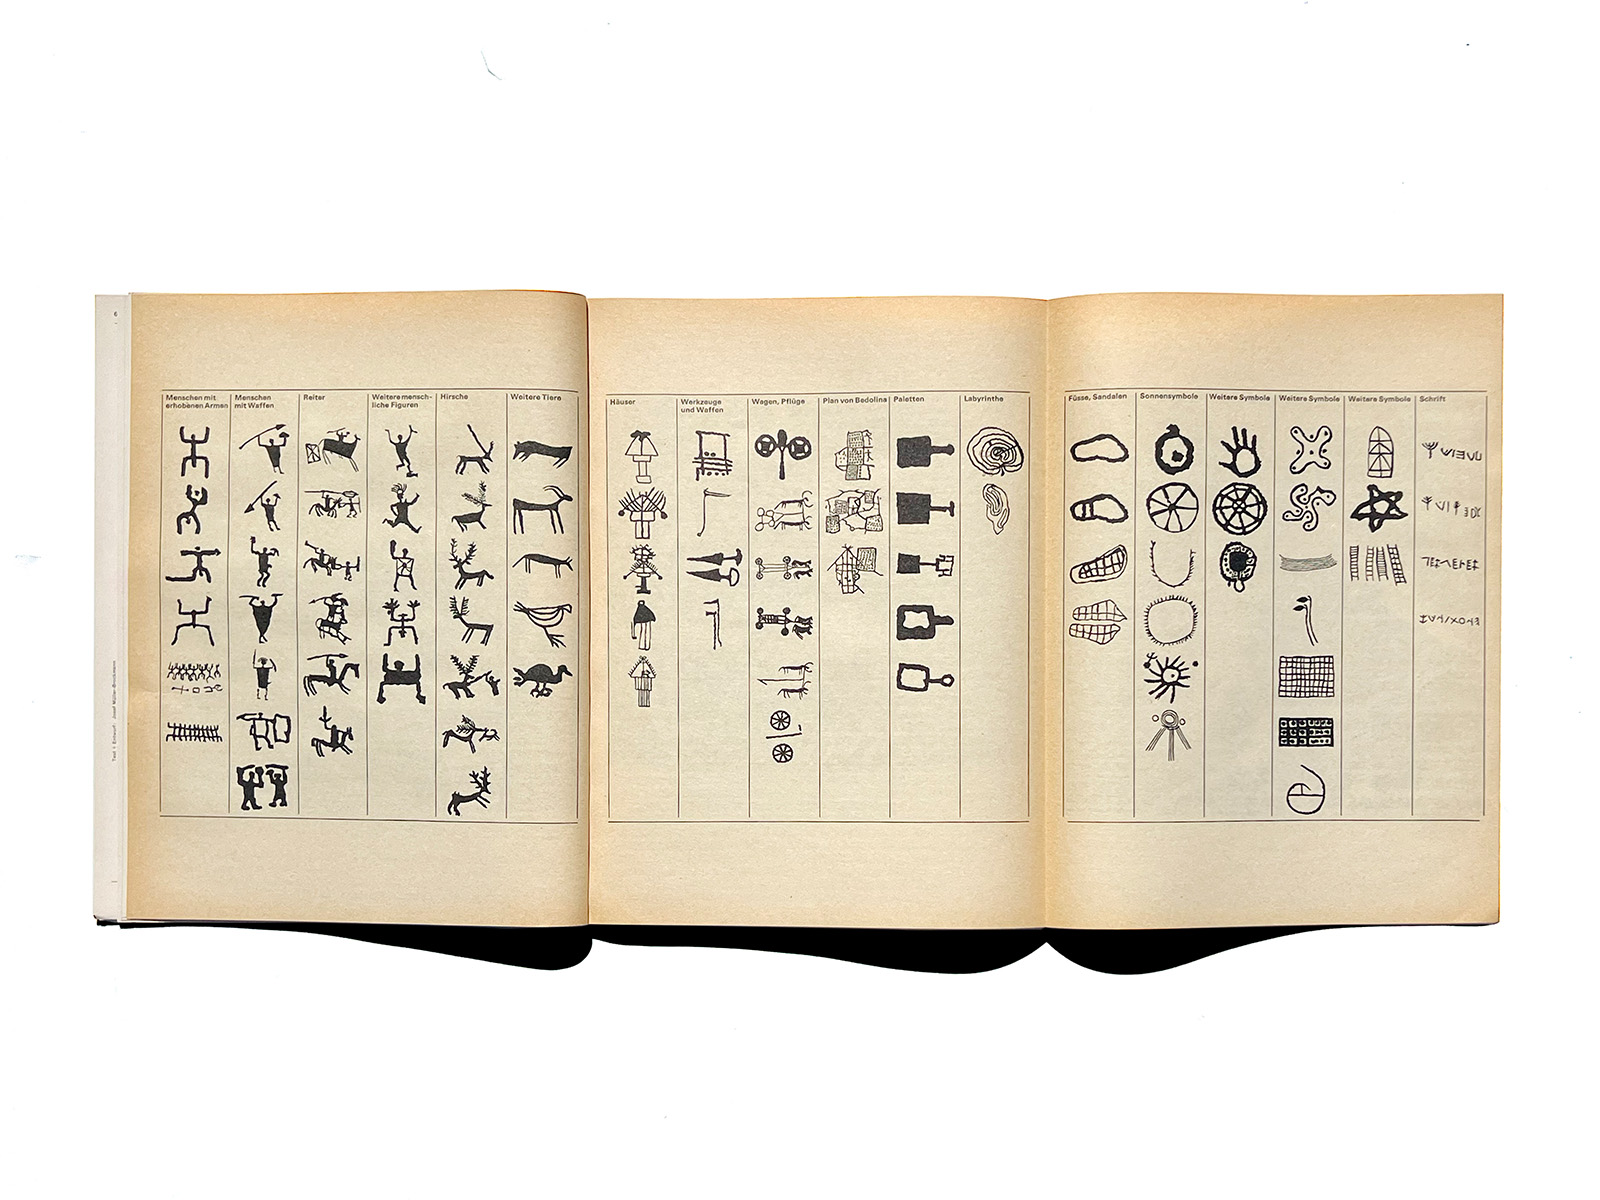 6
Text 1 Entwurf: Josef Müller-Brockmann
Menschen mit
erhobenen Armen
Menschen
mit Waffen
Reiter
Weitere mensch-
liche Figuren
Hirsche
Weitere Tiere
Häuser
Werkzeuge
und Waffen
Wagen, Pflüge
Plan von Bedolina
Paletten
Labyrinthe
Füsse, Sandalen
Sonnensymbole
Weitere Symbole
Weitere Symbole
Weitere Symbole
Schrift